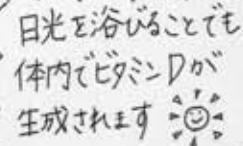 日光を浴びることでも
体内でビタミンDが
生成されます